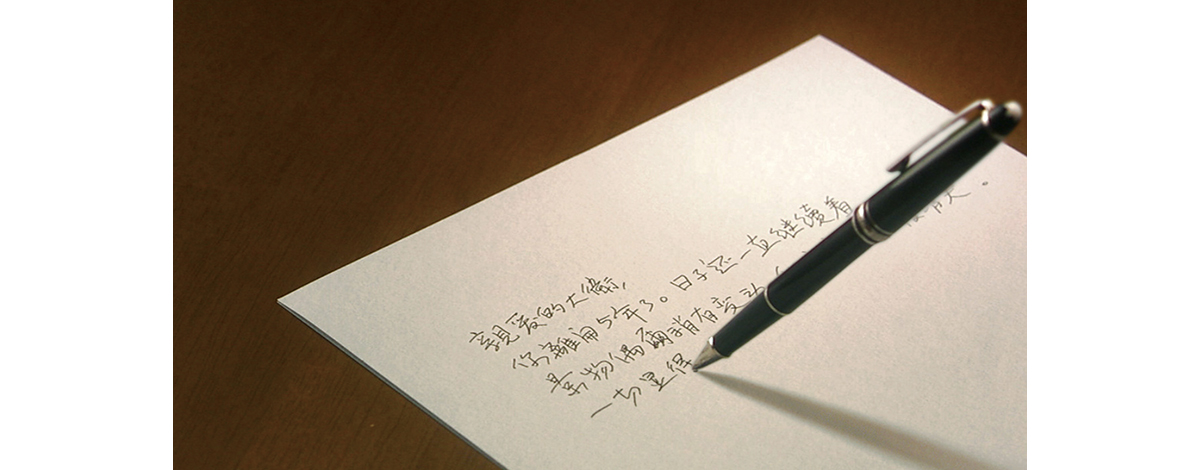 亲親爱的大衛，
你離開5年了。日子还一直继續着
景物偶爾稍有变
一切显得